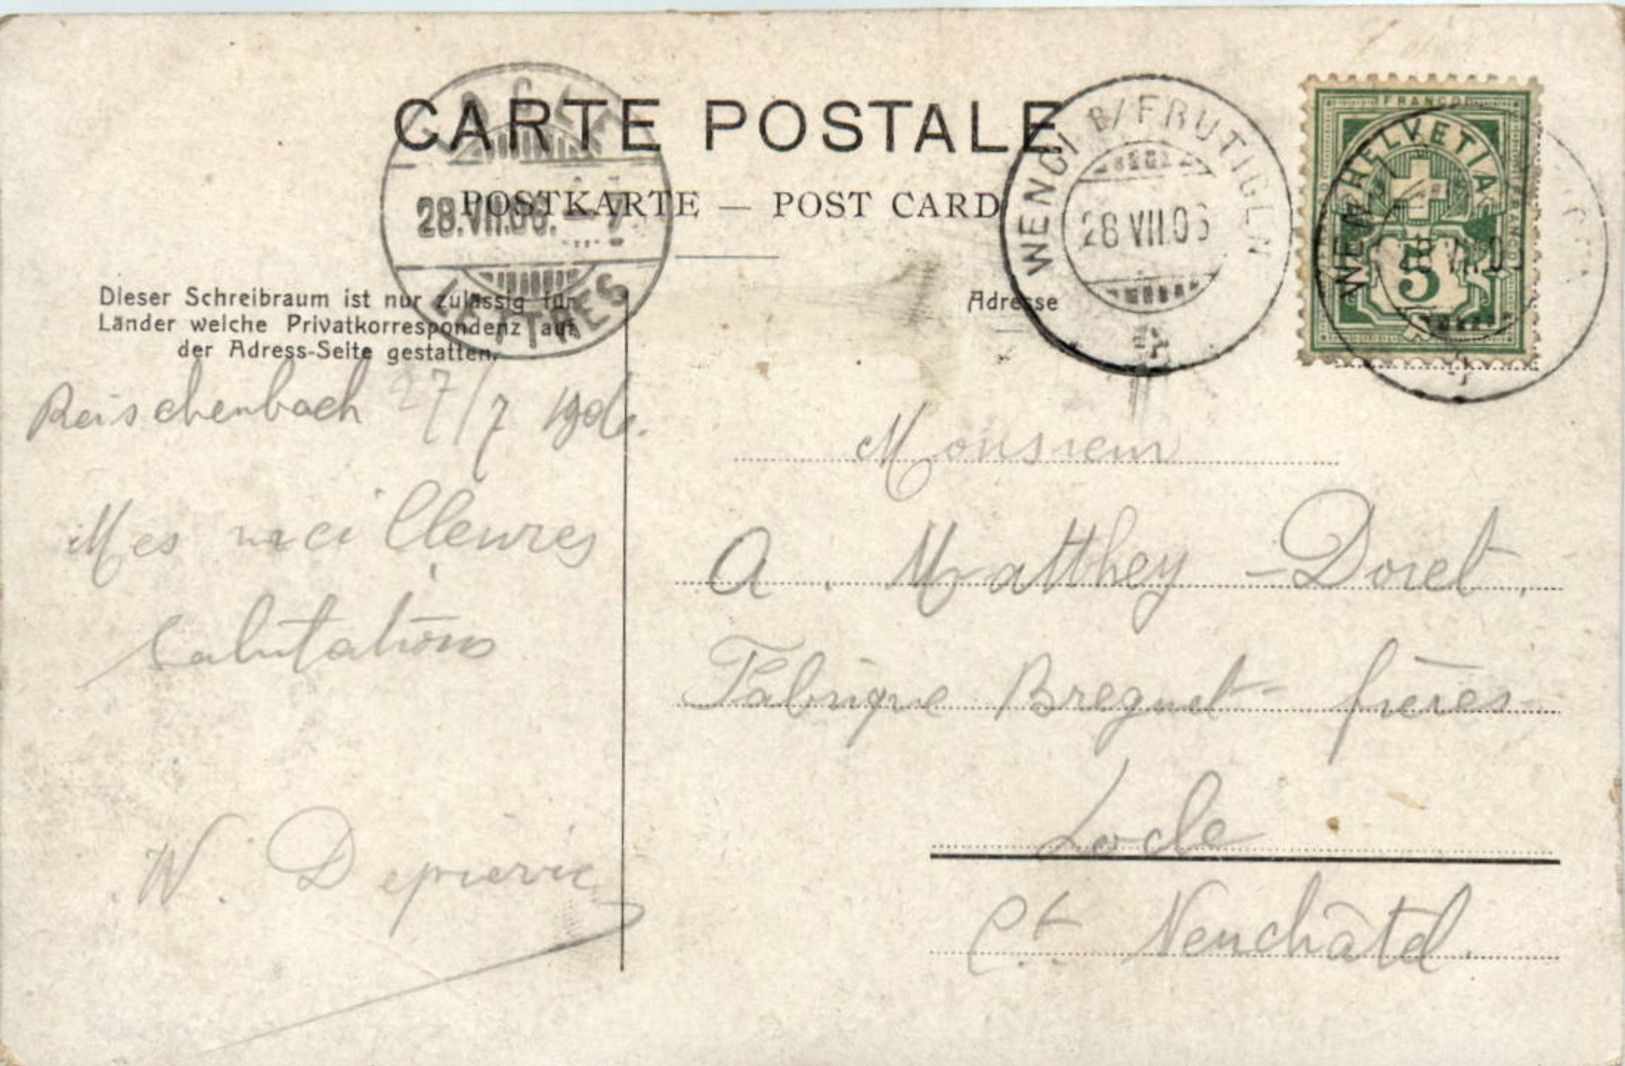 CARTE POSTALE
POSTKARTE — POST CARD
LOCLE
28.VII.06. — 7
LETTRES
WENGI B/FRUTIGEN
28 VII.06
FRANCO
HELVETIA
5
WEN
Dieser Schreibraum ist nur zulässig für
Länder welche Privatkorrespondenz auf
der Adress-Seite gestatten.
Adresse
Reischenbach 27/7 1906.
Mes meilleures
salutations
W.
Monsieur
A. Matthey-Doret.
Fabrique Breguet frères
Locle
Ct. Neuchâtel.